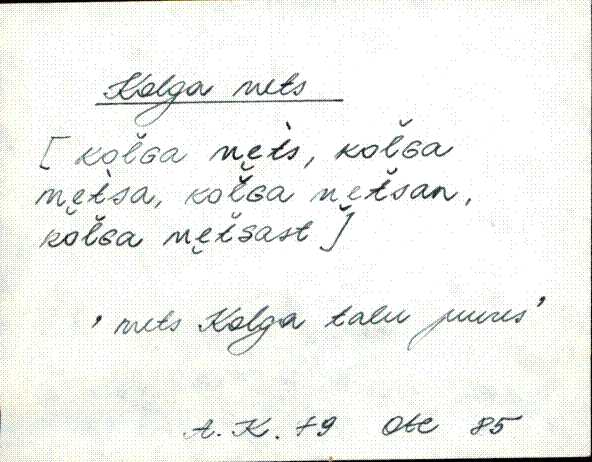 Kolga mets
[ kol̆ɢa me̮t̀s, kol̆ɢa
me̮t̀sa, kol̆ɢa me̮t̆san,
kol̆ɢa me̮t̆sast ]
' mets Kolga talu juures '
A. K. 79 Ote 85